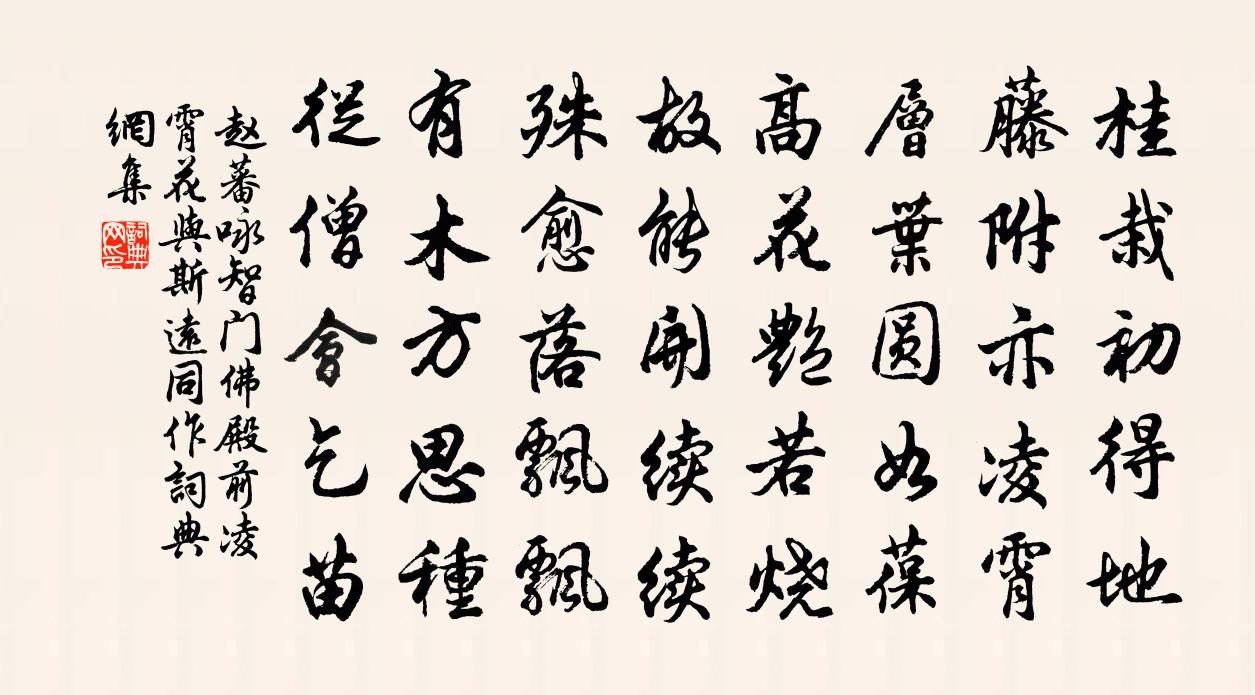 桂栽初得地
藤附亦凌霄
層葉圓如葆
高花艷若烧
故能開续续
殊愈落飄飄
有木方思種
從僧會乞苗
赵蕃咏智门佛殿前凌
霄花與斯遠同作詞典
網集
詞典
网印